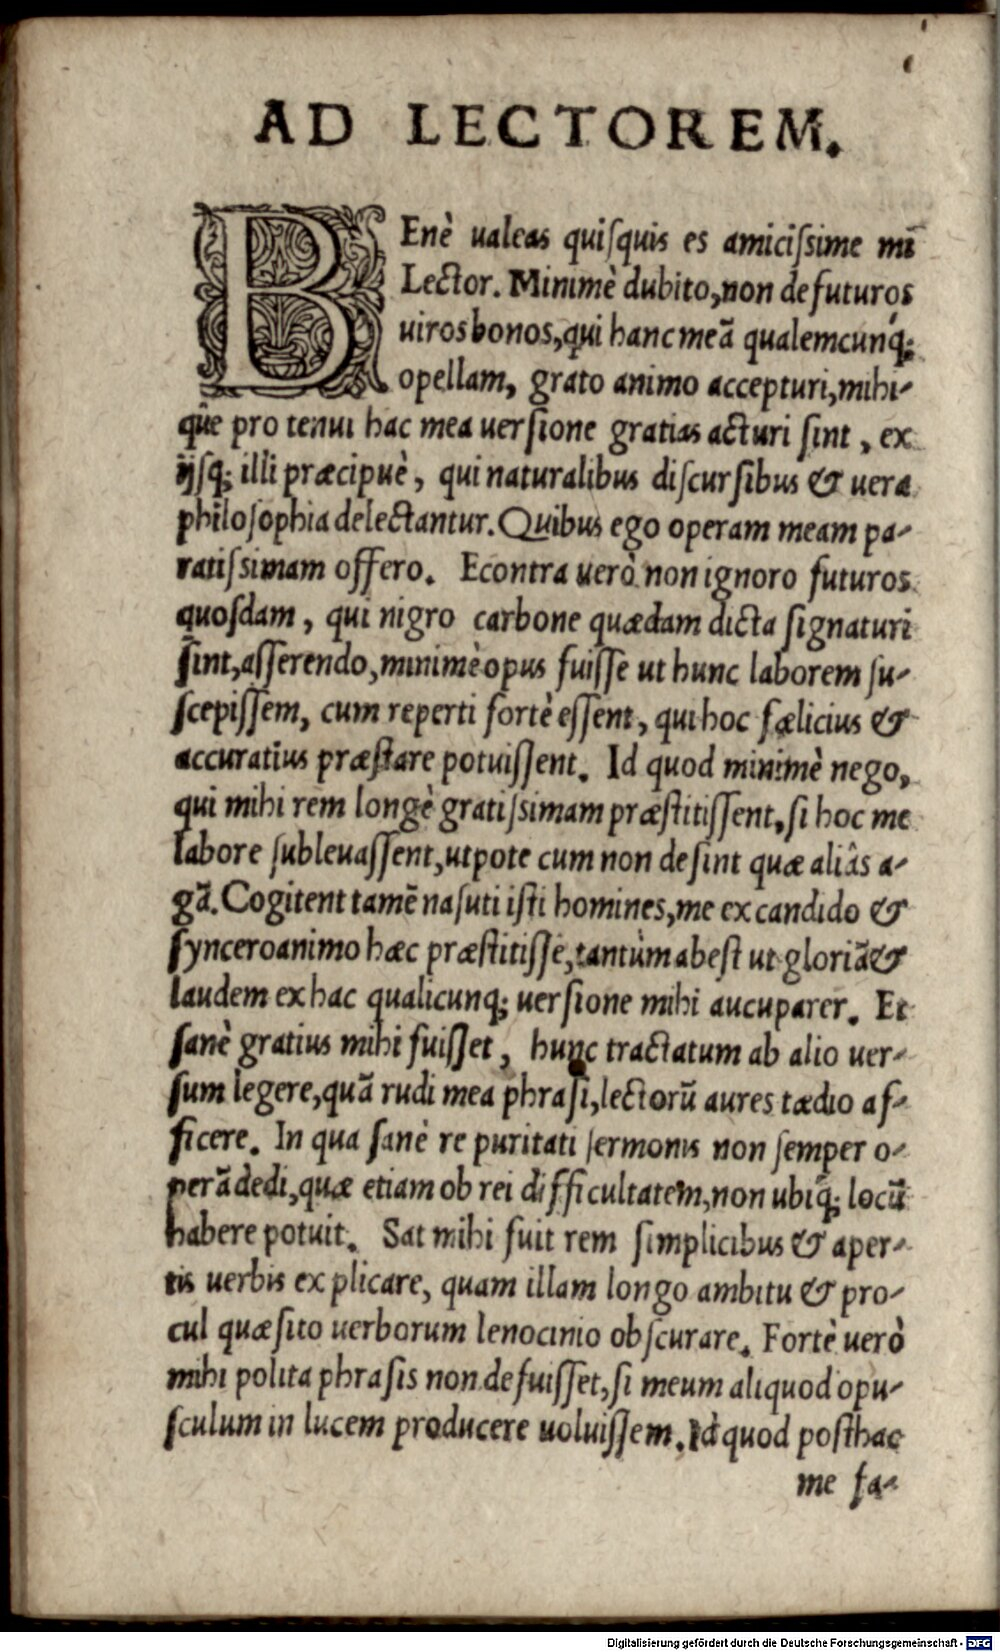 AD LECTOREM.
BEnè ualeas quiſquis es amiciſsime mi
Lector. Minimè dubito, non defuturos
uiros bonos, qui hanc meã qualemcunq;
opellam, grato animo accepturi, mihi-
que pro tenui hac mea uerſione gratias acturi ſint, ex
ijsq; illi præcipuè, qui naturalibus diſcurſibus & uera
philoſophia delectantur. Quibus ego operam meam pa-
ratiſsimam offero. Econtra uerò non ignoro futuros
quoſdam, qui nigro carbone quædam dicta ſignaturi
ſint, aſſerendo, minimè opus fuiſſe ut hunc laborem ſu-
ſcepiſſem, cum reperti fortè eſſent, qui hoc fælicius &
accuratius præſtare potuiſſent. Id quod minimè nego,
qui mihi rem longè gratiſsimam præſtitiſſent, ſi hoc me
labore ſubleuaſſent, utpote cum non deſint quæ aliâs a-
gã. Cogitent tamẽ naſuti iſti homines, me ex candido &
ſyncero animo hæc præſtitiſſe, tantùm abeſt ut gloriã &
laudem ex hac qualicunq; uerſione mihi aucuparer. Et
ſanè gratius mihi fuiſſet, hunc tractatum ab alio uer-
ſum legere, quã rudi mea phraſi, lectorũ aures tædio af-
ficere. In qua ſanè re puritati ſermonis non ſemper o-
perã dedi, quæ etiam ob rei difficultatem, non ubiq; locũ
habere potuit. Sat mihi fuit rem ſimplicibus & aper-
tis uerbis explicare, quam illam longo ambitu & pro-
cul quæſito uerborum lenocinio obſcurare. Fortè uerò
mihi polita phraſis non defuiſſet, ſi meum aliquod opu-
ſculum in lucem producere uoluiſſem. Id quod poſthac
me fa-
Digitalisierung gefördert durch die Deutsche Forschungsgemeinschaft - DFG